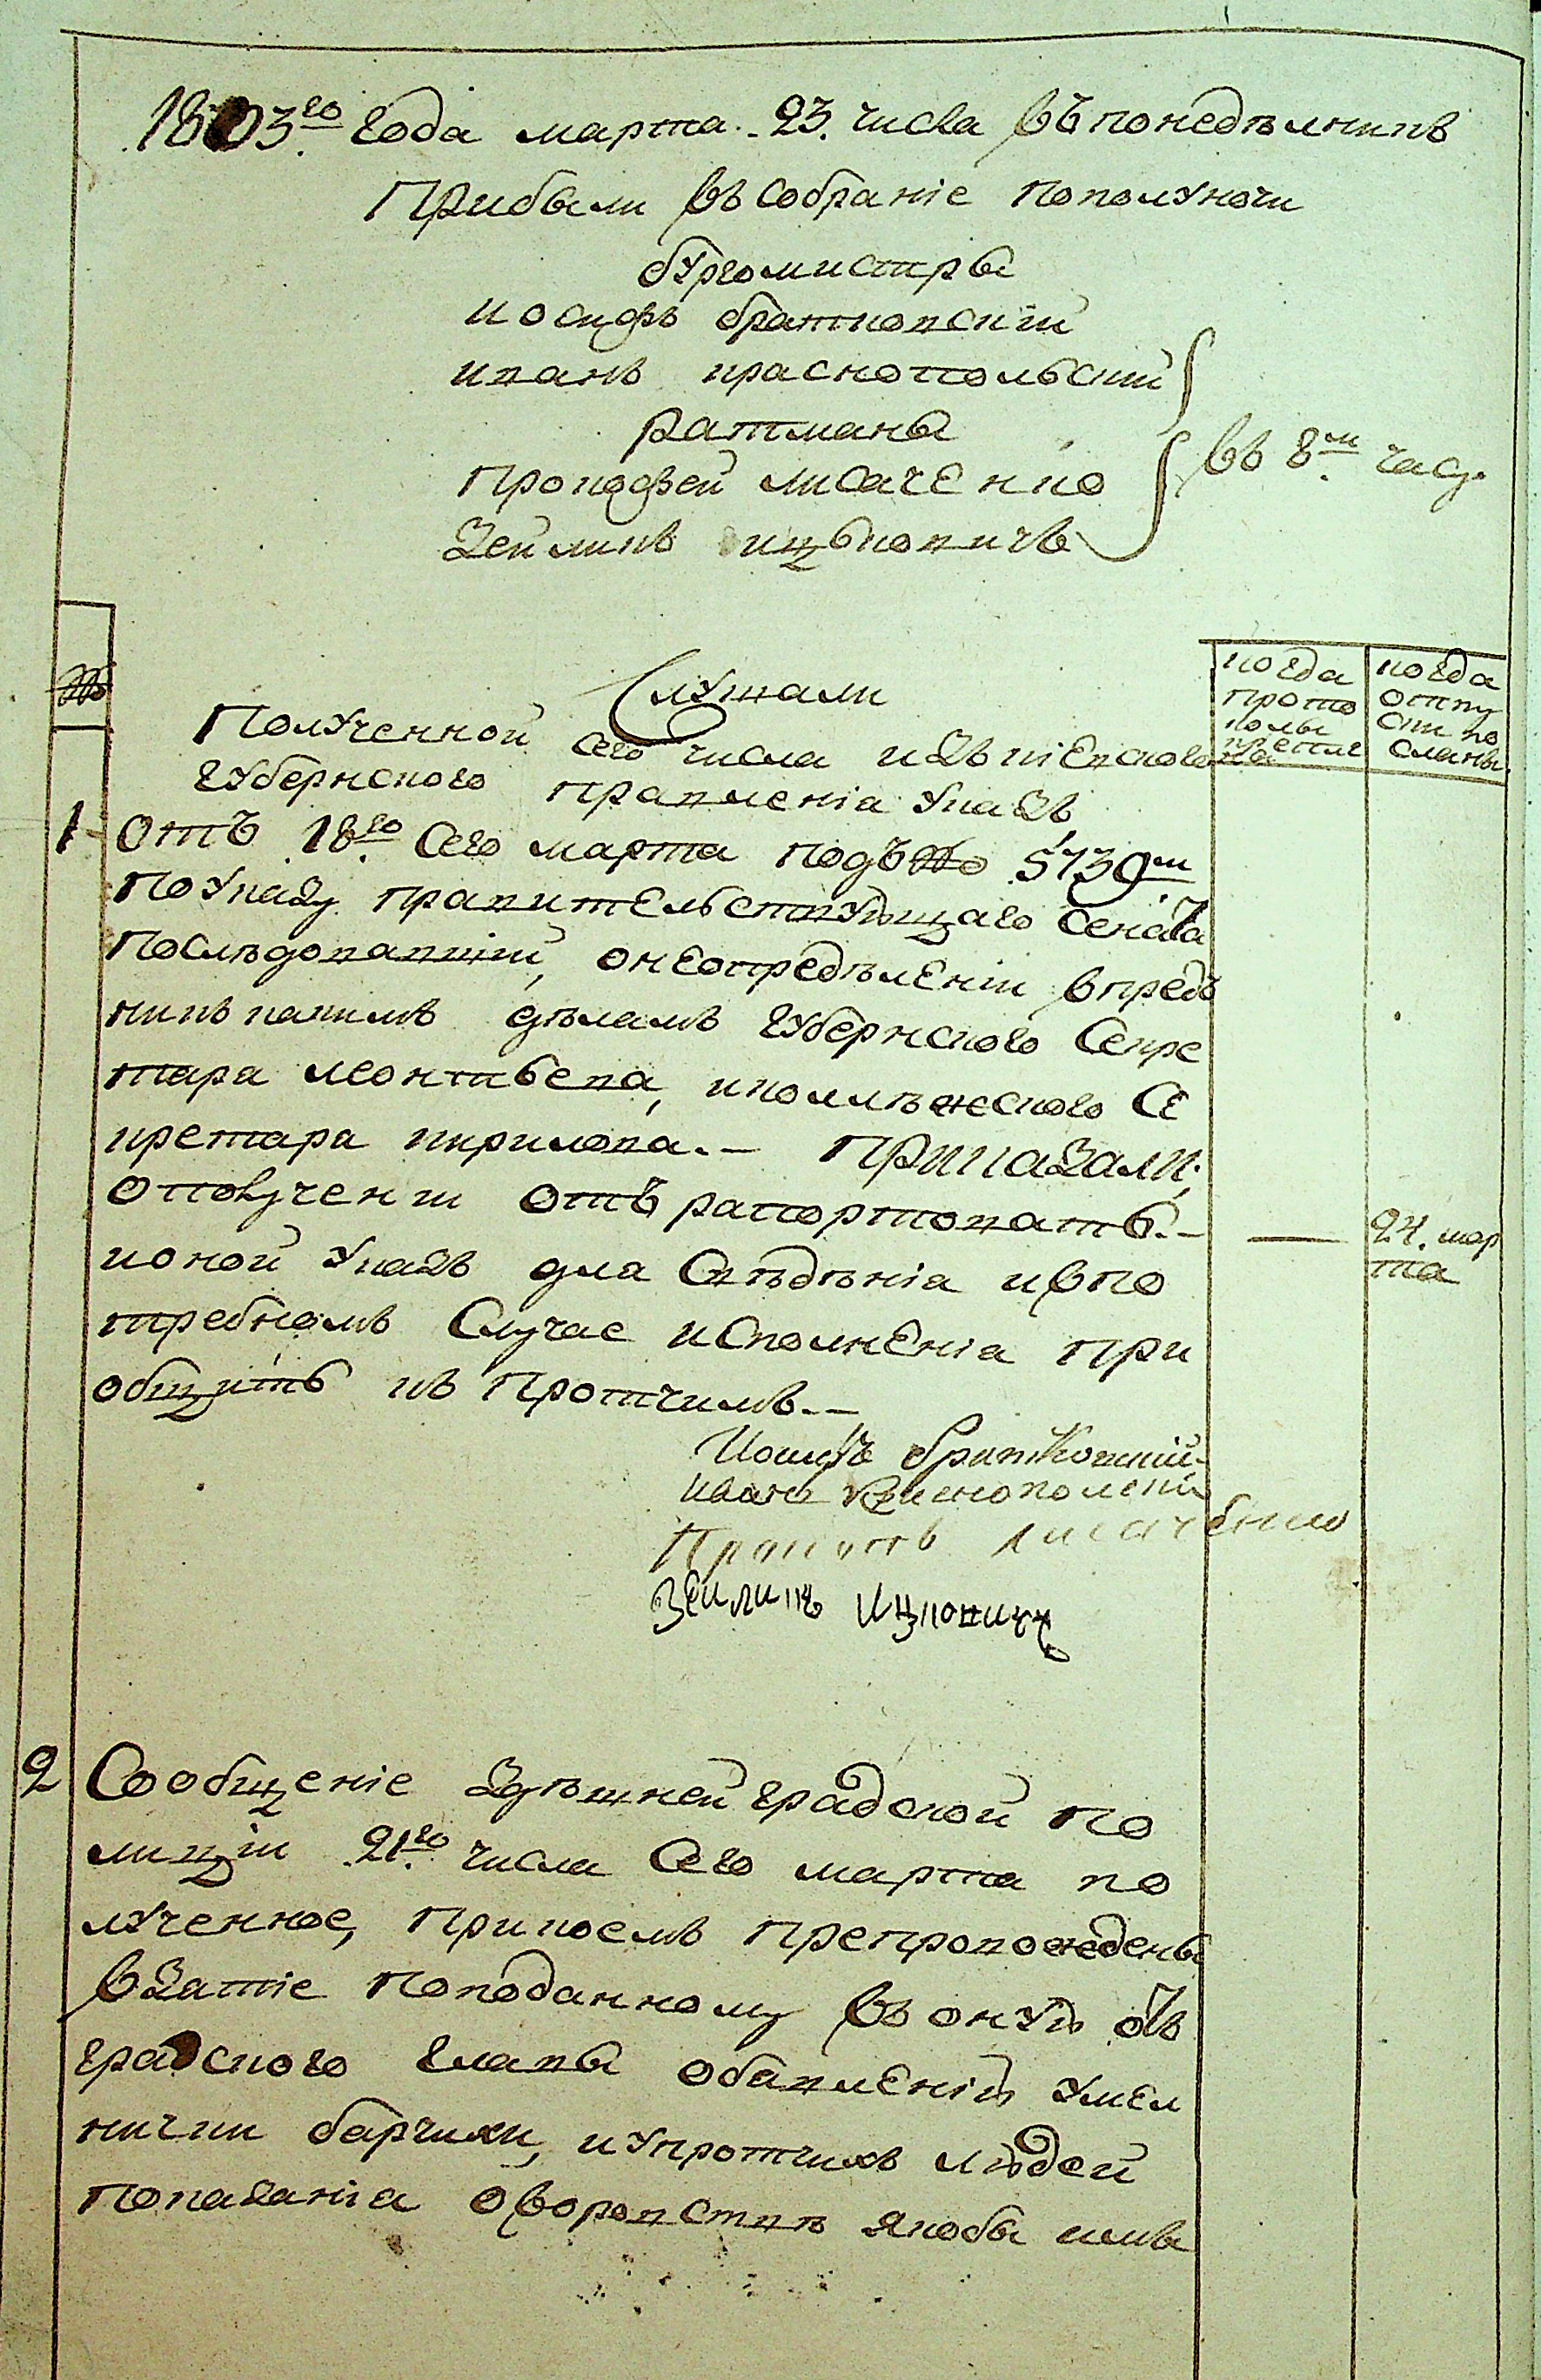 1803го года марта 23. числа въ понедѣлникъ
Прибыли въ собраніе пополуночи
бургомистры
иосифъ братковскій
иванъ краснопольскій
ратманы
прокофей лисаченко
Зейликъ ицьковичъ
въ 8м часу
№
Слушали
когда прото колы
когда отпу ски по сланы
Полученной сего числа изъ кіевского
губернского правленія указъ
1 отъ 18го сего марта подъ № 5739м
по указу правительствующаго сената
последовавшій, онеопредѣленіи впредь
никъ какимъ дѣламъ губернского секре
тара леонтьева, иколлѣжского се
кретара кирилова.- Приказали:
ополучении отъ рапортовать.-
ионой указъ для свѣдѣнія ивпо
требномъ случае исполненія при
общить къ протчимъ.-
24. мар
та
Иосифъ братковскій
иванъ краснополский
Прокофъ лисаченко
Зеиликъ ицкович
2 Сообщеніе здѣшней градской по
лиціи 21го числа сего марта по
лученное, прикоемъ препровождены
взатіе поподанному въ оную отъ
градского главы обавленію умел
нички барчихи, иупротчихъ людей
показанія оворовствѣ якобы ими